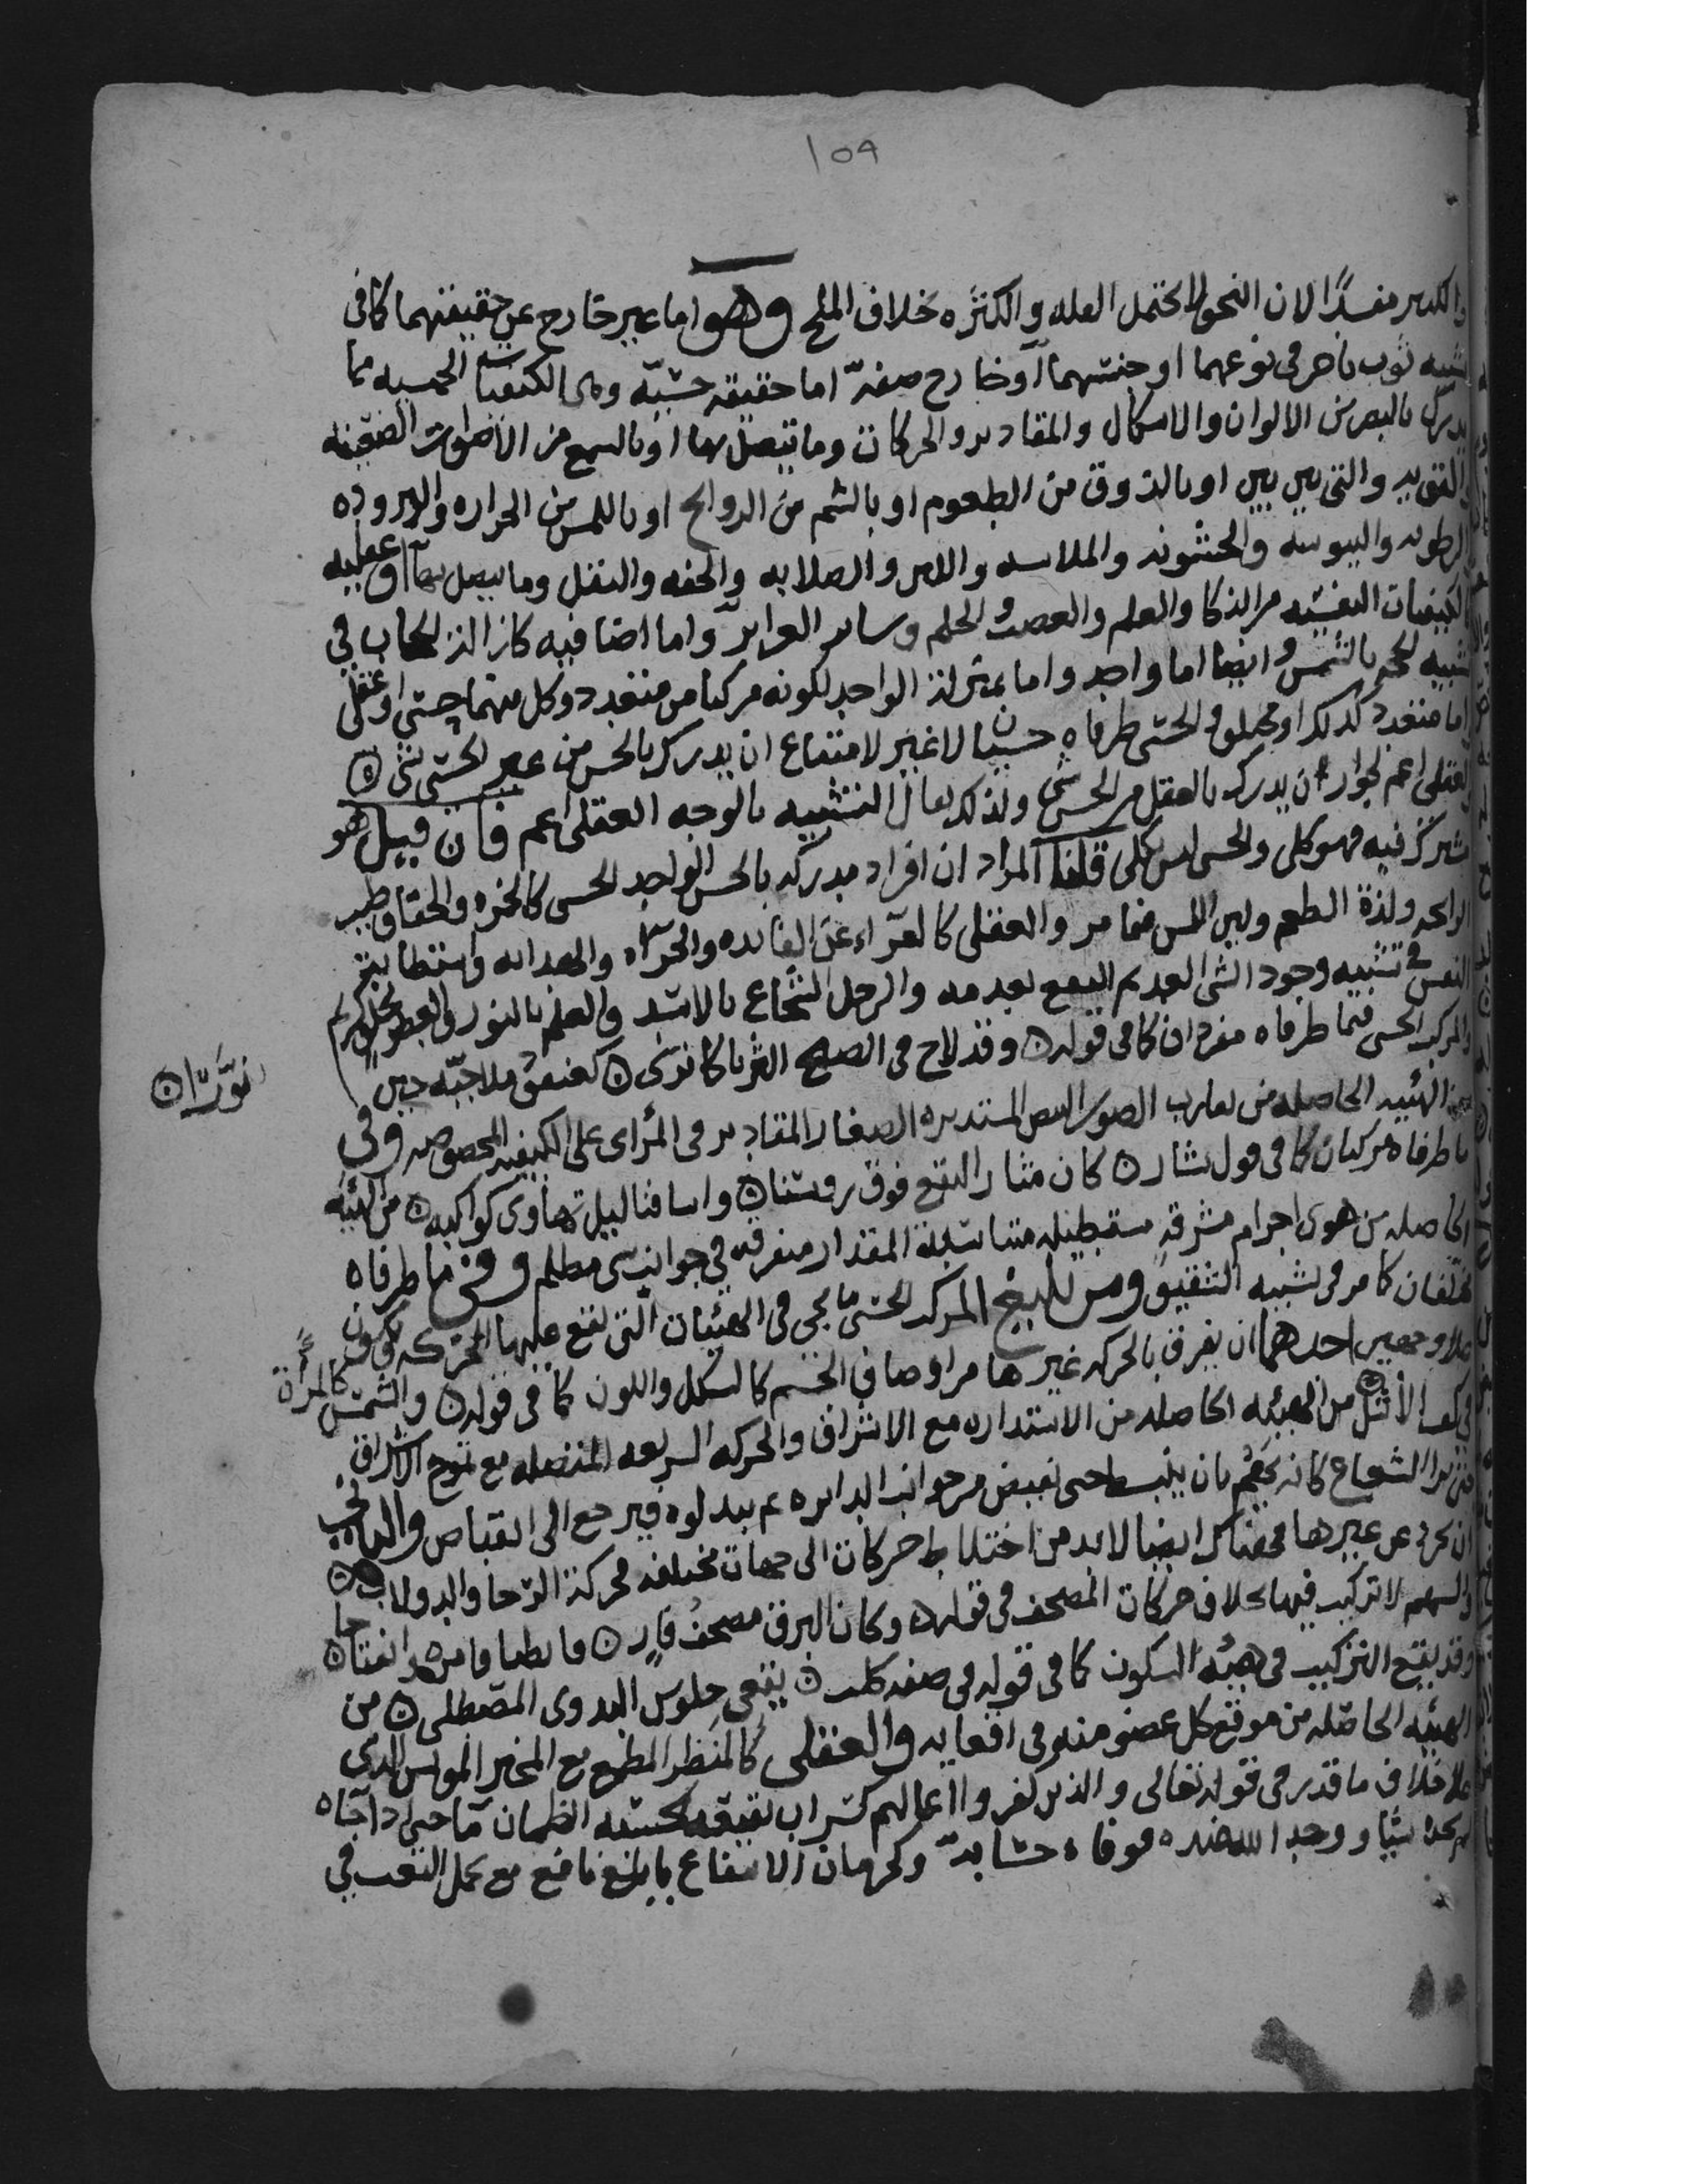 ١٥٩
والكثير مفسدًا لان النحو لا يحتمل القله والكثره بخلاف الملح وهو اما غير خارج عن حقيقتهما كما في
تشبيه ثوب باخر في نوعهما او جنسهما او خارج صفة اما حقيقة حسيّه وهي الكيفيات الجسميه مما
يدرك بالبصر من الالوان والاشكال والمقادير والحركات وما يتصل بها او بالسمع من الاصوات الضعيفه
والقويه والتي بين بين او بالذوق من الطعوم او بالشم من الروايح او باللمس من الحراره والبروده
والرطوبه واليبوسه والخشونه والملاسه واللين والصلابه والخفه والثقل وما يتصل بها او عقليه
كالكيفيات النفسيه من الذكا والعلم والغضب والحلم وساير الغرايز واما اضافيه كازالة الحجاب في
تشبيه الحجه بالشمس وايضا اما واحد واما بمنزلة الواحد لكونه مركبا من متعدد وكل منهما حسي او عقلي
واما متعدد كذلك او مختلف والحسي طرفاه حسيان لا غير لامتناع ان يدرك بالحس من غير الحسي شي ه
والعقلي اعم لجواز ان يدرك بالعقل من الحسي شي ولذلك يقال التشبيه بالوجه العقلي اعم فان قيل هو
مشترك فيه فهو كلي والحسي ليس بكلي قلنا المراد ان افراده مدركه بالحس الواحد الحسي كالحمره والخفا وطيب
الرايحه ولذة الطعم ولين اللمس فيما مر والعقلي كالعراء عن الفايده والجراه والهدايه واستطابة
النفس في تشبيه وجود الشي العديم النفع بعدمه والرجل الشجاع بالاسد والعلم بالنور والعطر بخلق كريم
والمركب الحسي فيما طرفاه مفردان كما في قوله ه وقد لاح في الصبح الثريا كما ترى ه كعنقود ملاحيّه حين
نوّرا ه
من الهيئه الحاصله من تقارب الصور البيض المستديره الصغار المقادير في المرأى على الكيفيه المخصوصه وفي
ما طرفاه مركبان كما في قول بشار ه كان مثار النقع فوق رؤسنا ه واسيافنا ليل تهاوى كواكبه ه من الهيئه
الحاصله من هوى اجرام مشرقه مستطيله متناسبة المقدار متفرقه في جوانب شي مظلم وفي ما طرفاه
مختلفان كما مر في تشبيه الشقيق ومن بديع المركب الحسي ما يجي في الهيئات التي تقع عليها الحركه ويكون
على وجهين احدهما ان يقرن بالحركه غيرها من اوصاف الجسم كالشكل واللون كما في قوله ه والشمس كالمراة
في كف الاشل ه من الهيئه الحاصله من الاستداره مع الاشراق والحركه السريعه المتصله مع تموج الاشراق
حتى يرى الشعاع كانه يهم بان ينبسط حتى يفيض من جوانب الدايره ثم يبدو له فيرجع الى انقباض والثاني
ان تجرد عن غيرها فهناك ايضا لا بد من اختلاط حركات الى جهات مختلفه فحركة الرحا والدولاب
والسهم لا تركيب فيها بخلاف حركات المصحف في قوله ه وكان البرق مصحف قارٍ ه فانطباقا مره وانفتاحا ه
وقد يقع التركيب في هيئه السكون كما في قوله في صفه كلب ه يقعي جلوس البدوي المصطلي ه من
الهيئه الحاصله من موقع كل عضو منه في اقعايه والعقلي كالمنظر المطمع مع المخبر المويس الذي
على خلاف ما قدر في قوله تعالى والذين كفروا اعمالهم كسراب بقيعه يحسبه الظمان ما حتى اذا جاه
لم يجده شيا ووجد الله عنده فوفاه حسابه وكحرمان الانتفاع بابلغ نافع مع تحمل التعب في